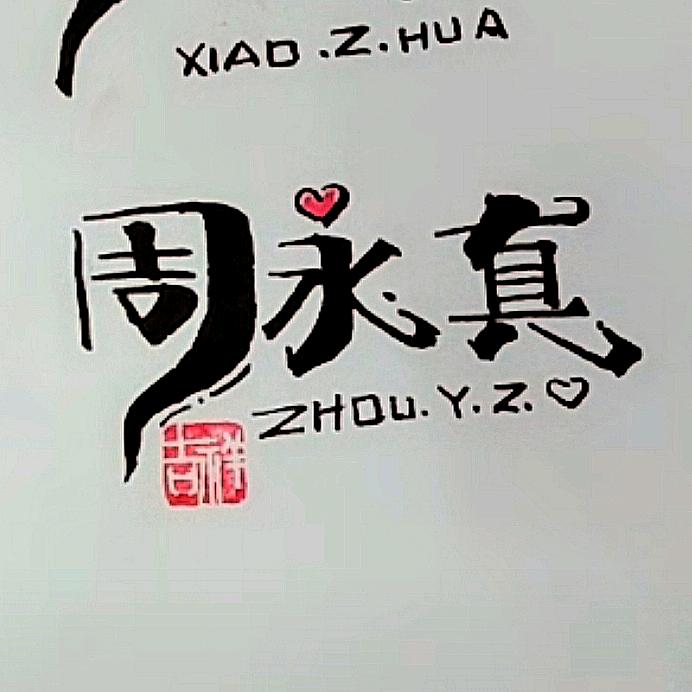 XIAO.Z.HUA
周永真
ZHOU.Y.Z.♡
吉祥